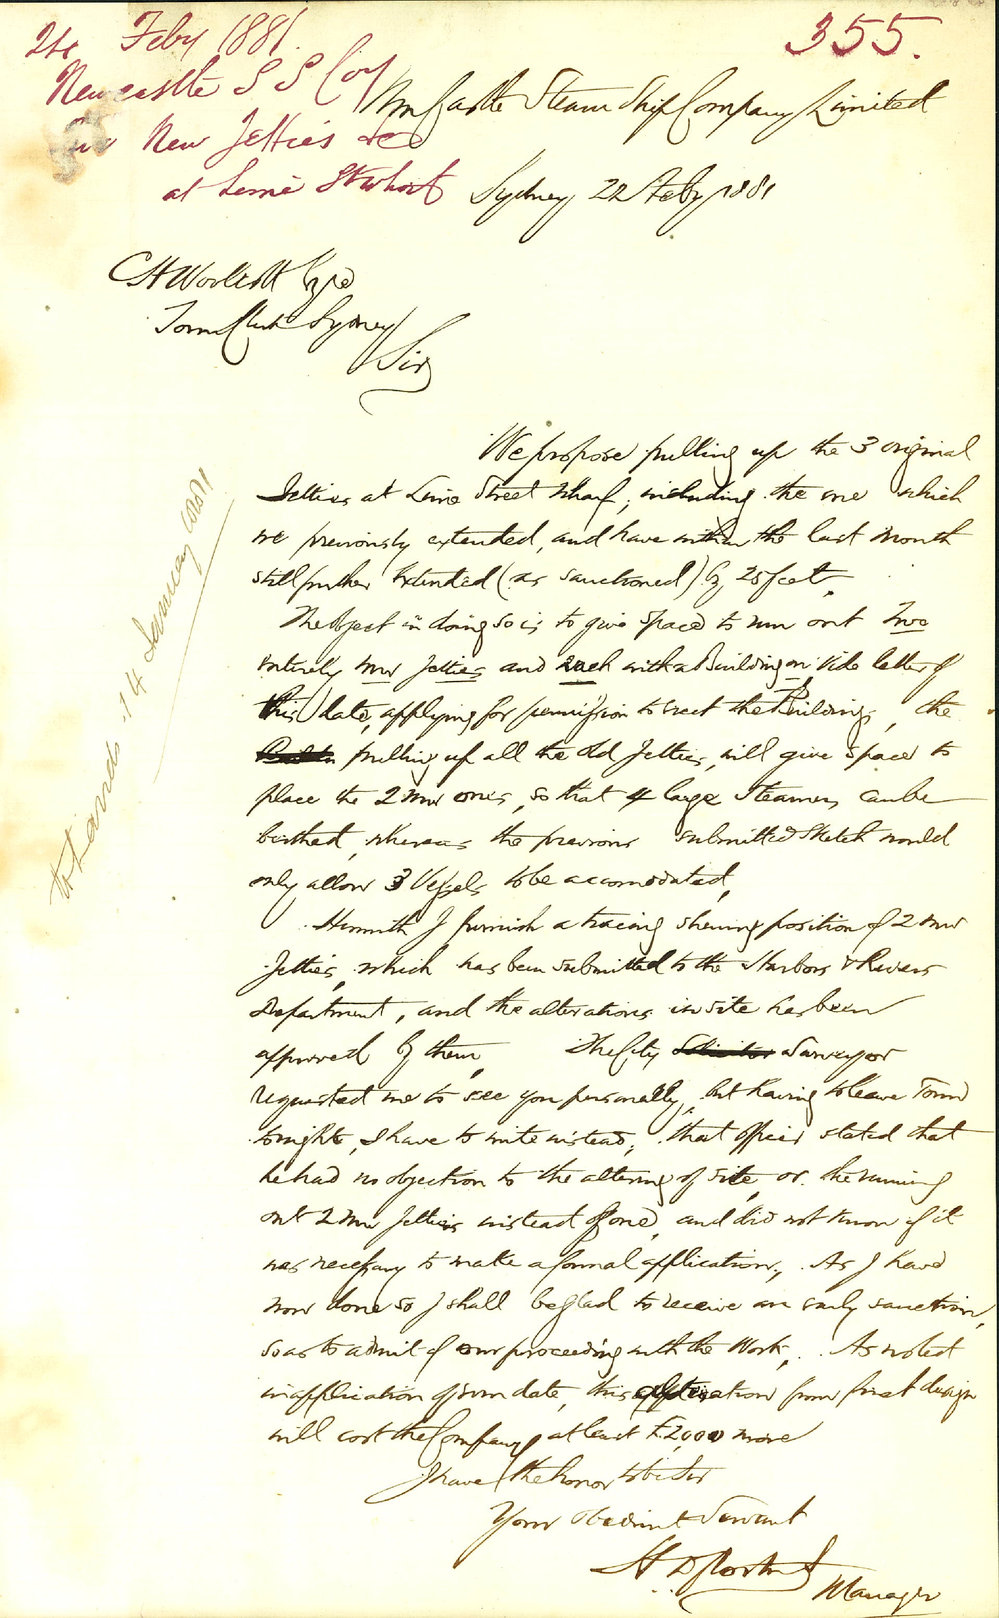 24 Feby 1881.
355.
Newcastle S S Coy
New Jetties &c
at Lime St Wharf
Newcastle Steam Ship Company Limited
Sydney 22 Feby 1881
C H Woolcott Esqre
Town Clerk Sydney
Sir
We propose pulling up the 3 original
Jetties at Lime Street Wharf, including the one which
we previously extended, and have within the last month
still further extended (as sanctioned) by 25 feet,
The object in doing so is to give space to run out Two
entirely new Jetties and each with a Building on, vide letter of
this date, applying for permission to erect the Buildings, the
pulling up all the old Jetties, will give space to
place the 2 new ones, so that 4 large Steamers can be
berthed, whereas the previous submitted sketch would
only allow 3 Vessels to be accomodated,
Herewith I furnish a tracing shewing position of 2 new
Jetties, which has been submitted to the Harbors & Rivers
Department, and the alterations in site has been
approved by them, The City Solicitor Surveyor
requested me to see you personally, but having to leave Town
tonight, I have to write instead, that officer stated that
he had no objection to the altering of site, or the running
out 2 new Jetties instead of one, and did not know if it
was necessary to make a formal application, As I have
now done so I shall be glad to receive an early sanction,
so as to admit of our proceeding with the Work, As noted
in application of even date, this alteration from first design
will cost the Company at least £2,000 more
I have the honor to be Sir
Your obedient Servant
Manager